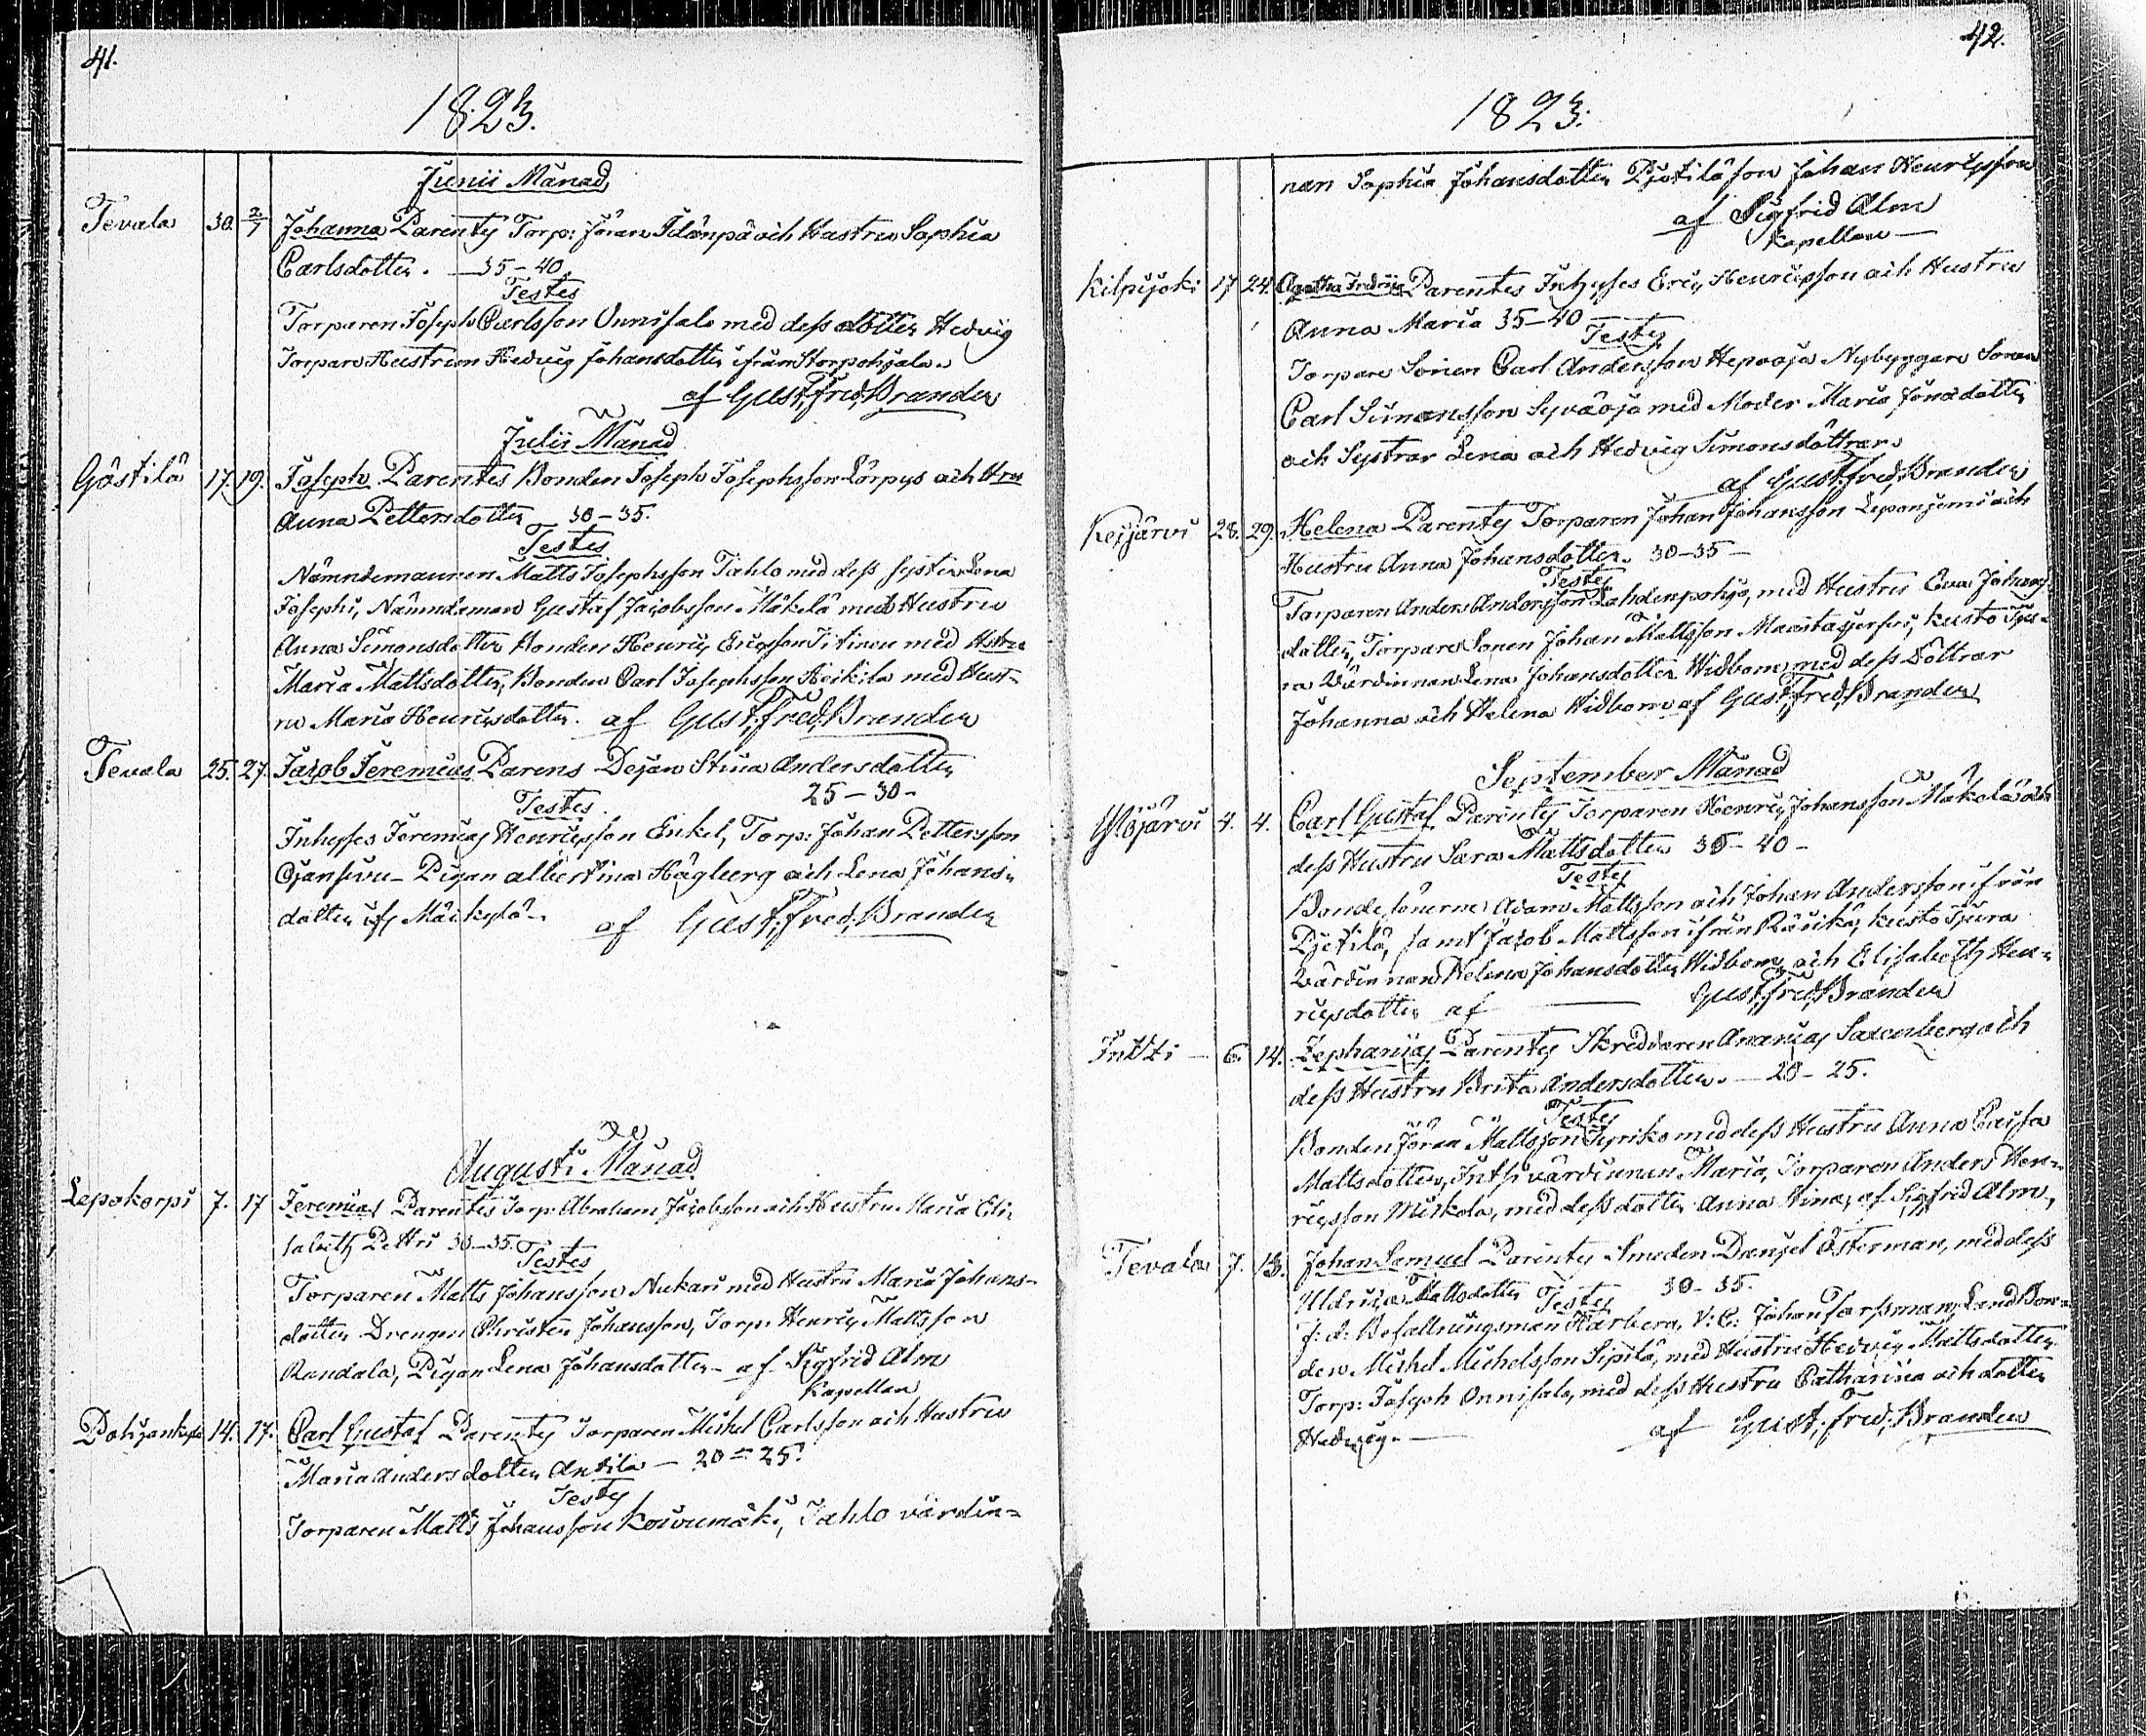 41.
1823.
Junii Månad
Tevala 30. 2/7 Johanna Parentes Torp: Jöran Ylänpä och Hustru Sophia
Carlsdotter. — 35-40
Testes
Torparen Joseph Carlsson Onnisalo med dess dotter Hedvig
Torpare Hustrun Hedvig Johansdotter ifrån Storpohjala.
af Gust. Fred. Brander
Julii Månad
Gästilä 17. 19. Joseph Parentes Bonden Joseph Josephsson Lörpys och Hru
Anna Pettersdotter 30-35.
Testes
Nämndemannen Matts Josephsson Tahlo med dess syster Lena
Josephs, Nämndeman Gustaf Jacobsson Mäkelä med Hustru
Anna Simonsdotter Bonden Henric Ericsson Jitinen med Hstru
Maria Mattsdotter, Bonden Carl Josephsson Heikilä med Hust-
ru Maria Henricsdotter. af Gust. Fred. Brander
Tevala 25. 27. Jacob Jeremias Parens Dejan Stina Andersdotter
25-30-
Testes.
Inhyses Jeremias Henricsson Enkel, Torp: Johan Pettersson
Ojansivu - Pigan Albertina Hägberg och Lena Johans-
dotter Mäikylä - af Gust. Fred. Brander
Augusti Månad
Lepokorpi 7. 17 Jeremias Parentes Torp: Abraham Jacobsson och Hustru Maria Eli-
sabeth Pettri 30-35.
Testes
Torparen Matts Johansson Nukari med Hustru Maria Johans-
dotter Drengen Christer Johansson, Torp: Henric Mattsson
Randala, Pigan Lena Johansdotter - af Sigfrid Alm
Kapellan
14. 17. Carl Gustaf Parentes Torparen Michel Carlsson och Hustru
Maria Andersdotter Antila - 20-25.
Testes
Torparen Matts Johansson Koivumäki, Tahlo värdin-
42.
1823.
nan Sophia Johansdotter Pjetilä son Johan Henricsson
af Sigfrid Alm
Kapellan —
Kilpijoki 17 24. Agatha Parentes Inhyses Eric Henricsson och Hustru
Anna Maria 35-40
Testes
Torpare Sonen Carl Andersson Hepooja Nybyggare Sonen
Carl Simonsson Syväoja med Moder Maria Jöransdotter
och Systrar Lena och Hedvig Simonsdöttrar.
af Gust. Fred. Brander
Keyjärvi 28. 29. Helena Parentes Torparen Johan Johansson Leponjemi och
Hustru Anna Johansdotter. 30-35 -
Testes
Torparen Anders Andersson Lahdenpohja, med Hustru Eva Johans
dotter, Torpare Sonen Johan Mattsson Kusto Tju-
ra Värdinnan Lena Johansdotter Widbom med dess Döttrar
Johanna och Helena Widbom af Gust. Fred. Brander
September Månad
Ylöjärvi 4. 4. Carl Gustaf Parentes Torparen Henric Johansson Mäkelä och
dess Hustru Sara Mattsdotter 35-40-
Testes
Bondesönerne Adam Mattsson och Johan Andersson ifrån
Pjetilä, samt Jacob Mattsson ifrån Räsikä, Kusto Tjura
Värdinnan Helena Johansdotter Widbom och Elisabeth Hen-
ricsdotter af — Gust. Fred. Brander
Intti - 6. 14. Zephanias Parentes Skreddaren Ananias Saxenberg och
dess Hustru Brita Andersdotter. — 20-25.
Testes
Bonden Jöran Mattsson Syriko med dess Hustru Anna Caisa
Mattsdotter, Intti värdinnan Maria, Torparen Anders Hen-
ricsson Miskola, med dess dotter Anna Stina, af Sigfrid Alm,
Tevala 7. 13. Johan Samuel Parentes Smeden Daniel Österman, med dess
Uldrica Mattsdotter Testes 30-35.
f: d: Befallningsman Karberg, V: C: Johan Forssman, Land Bon-
den Michel Michelsson Sipilä, med Hustru Hedvig Mattsdotter
Torp: Joseph Onnisalo, med dess Hustru Catharina och dotter
Hedvig. — af Gust. Fred. Brander